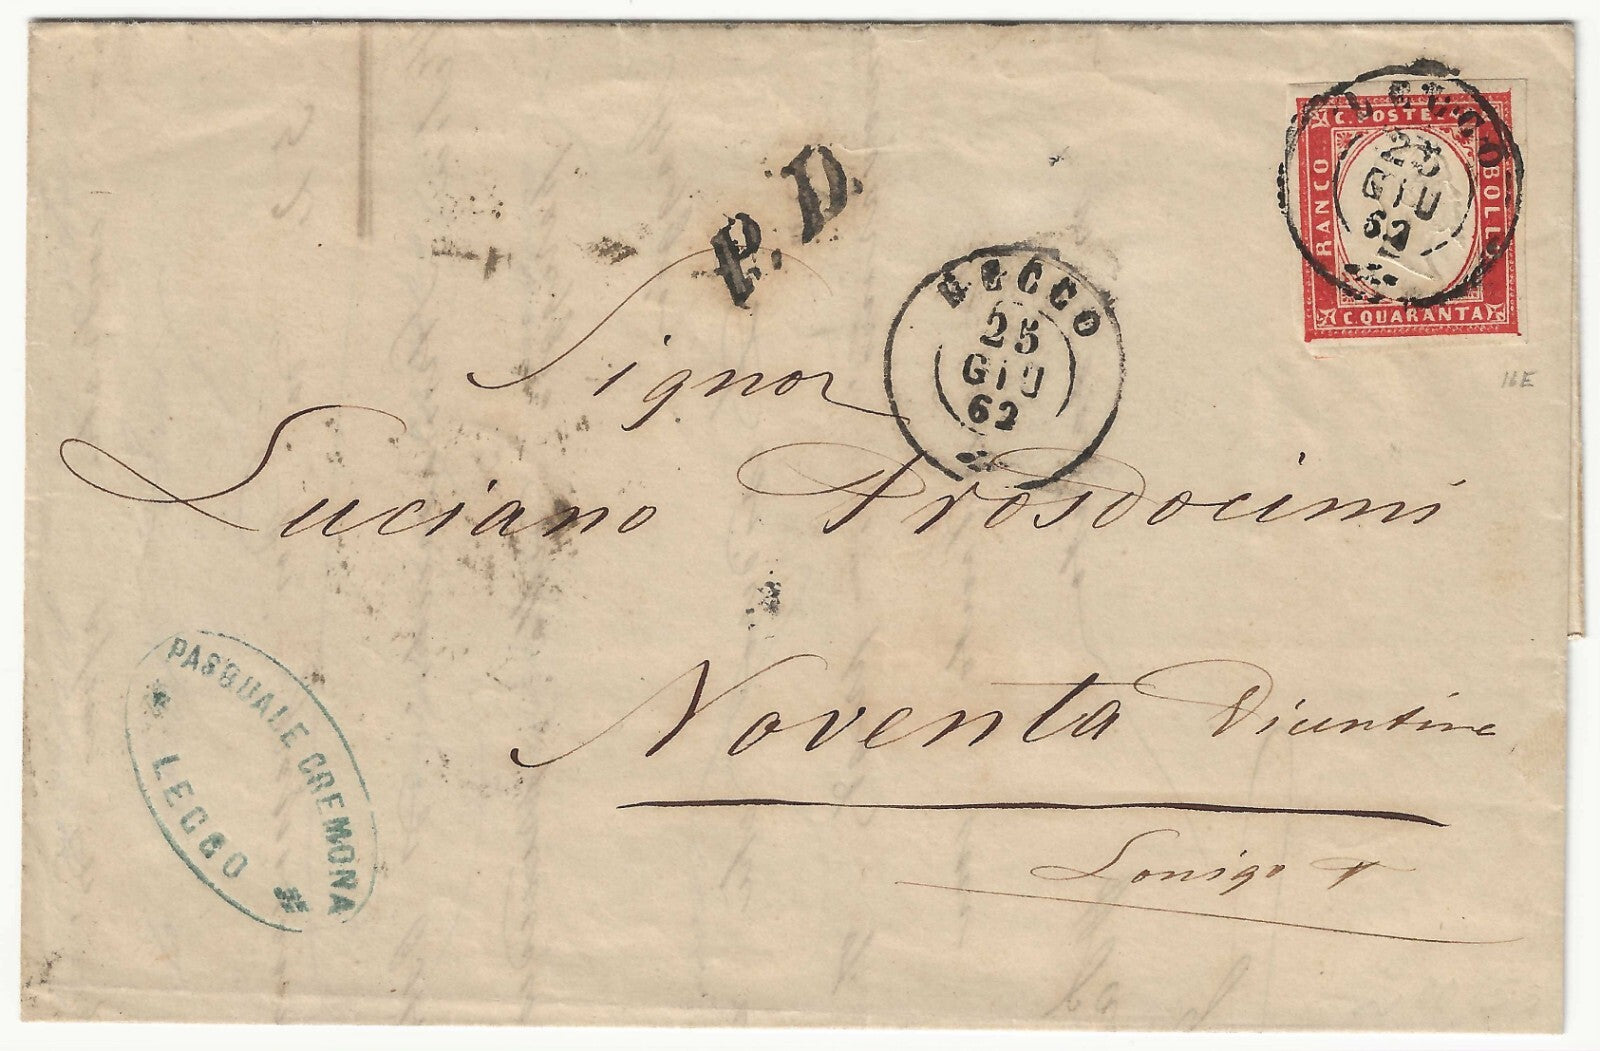 C. POSTE
FRANCO
BOLLO
C QUARANTA
LECCO
25
GIU
62
P. D.
LECCO
25
GIU
62
16E
Signor
Luciano Prosdocimi
Noventa Vicentina
Lonigo
PASQUALE CREMONA
LECCO